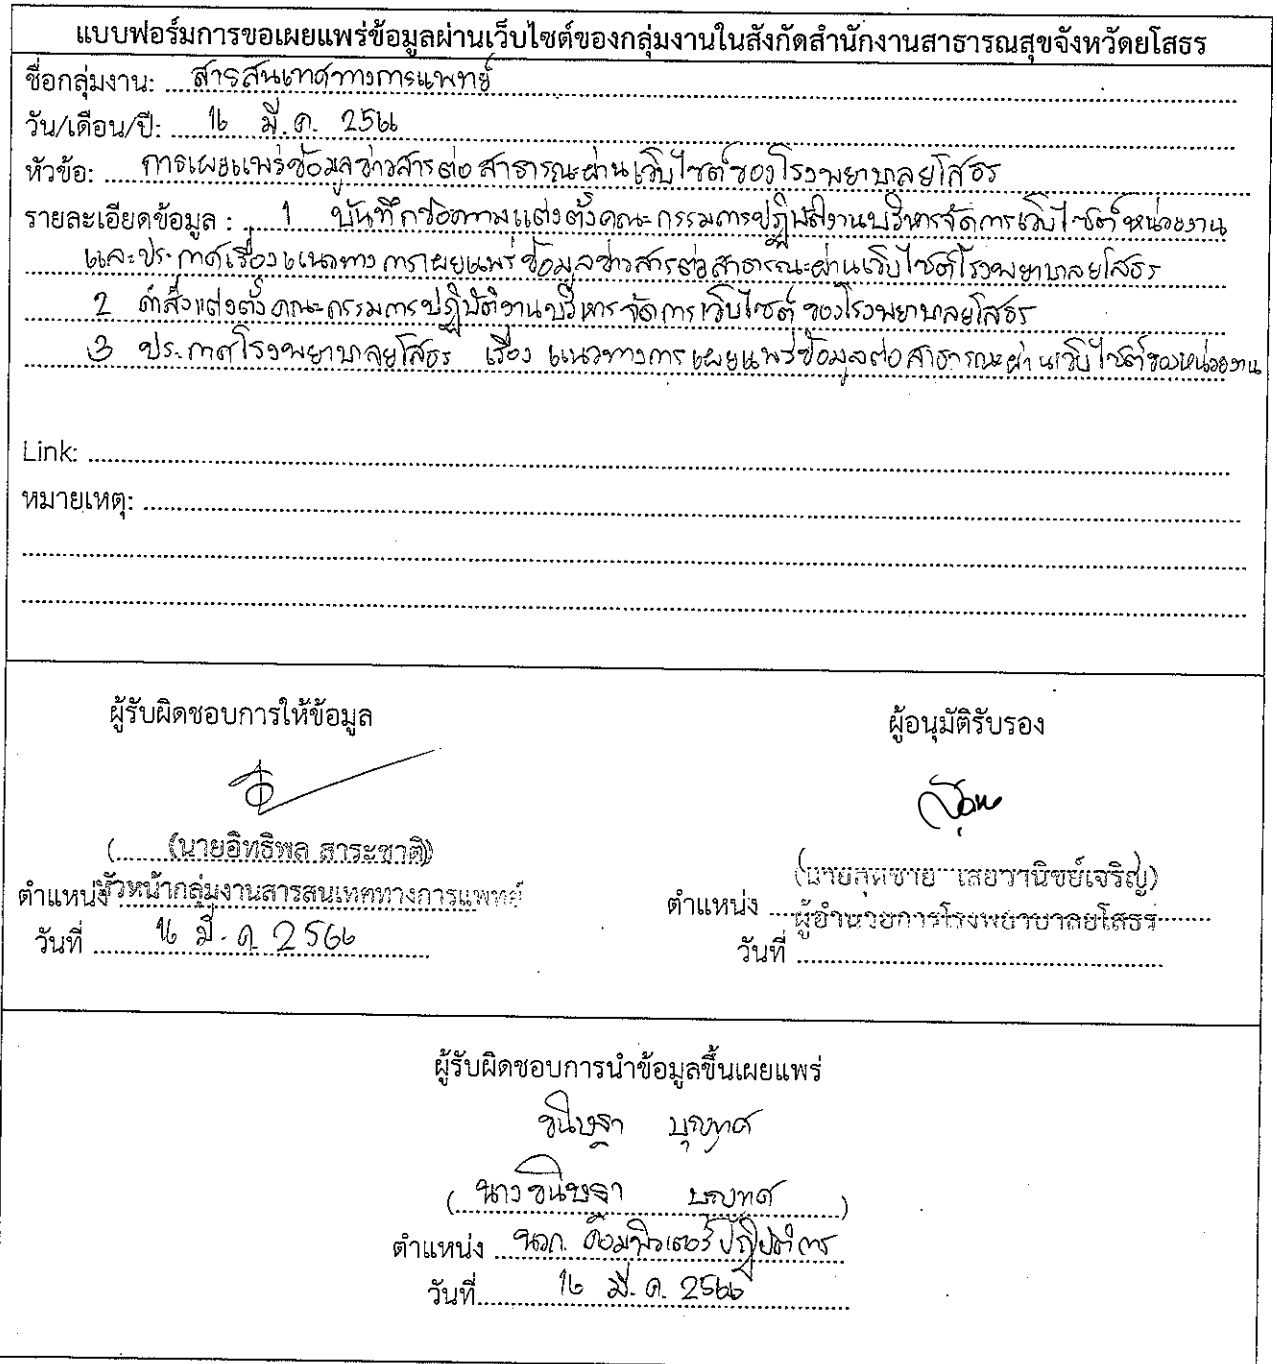 แบบฟอร์มการขอเผยแพร่ข้อมูลผ่านเว็บไซต์ของกลุ่มงานในสังกัดสำนักงานสาธารณสุขจังหวัดยโสธร
ชื่อกลุ่มงาน: สารสนเทศทางการแพทย์
วัน/เดือน/ปี: 16 มี.ค. 2566
หัวข้อ: การเผยแพร่ข้อมูลข่าวสารต่อสาธารณะผ่านเว็บไซต์ของโรงพยาบาลยโสธร
รายละเอียดข้อมูล : 1 บันทึกข้อความแต่งตั้งคณะกรรมการปฏิบัติงานบริหารจัดการเว็บไซต์หน่วยงาน
และประกาศเรื่องแนวทางการเผยแพร่ข้อมูลข่าวสารต่อสาธารณะผ่านเว็บไซต์โรงพยาบาลยโสธร
2 คำสั่งแต่งตั้งคณะกรรมการปฏิบัติงานบริหารจัดการเว็บไซต์ ของโรงพยาบาลยโสธร
3 ประกาศโรงพยาบาลยโสธร เรื่อง แนวทางการเผยแพร่ข้อมูลต่อสาธารณะผ่านเว็บไซต์ของหน่วยงาน
Link:
หมายเหตุ:
ผู้รับผิดชอบการให้ข้อมูล
ผู้อนุมัติรับรอง
(นายอิทธิพล สาระชาติ)
(นายสุขชาย เสยวานิชย์เจริญ)
ตำแหน่ง หัวหน้ากลุ่มงานสารสนเทศทางการแพทย์
ตำแหน่ง ผู้อำนวยการโรงพยาบาลยโสธร
วันที่ 16 มี.ค. 2566
วันที่
ผู้รับผิดชอบการนำข้อมูลขึ้นเผยแพร่
ขนิษฐา บุญทศ
(นางขนิษฐา บุญทศ)
ตำแหน่ง นวก. คอมพิวเตอร์ปฏิบัติการ
วันที่ 16 มี.ค. 2566